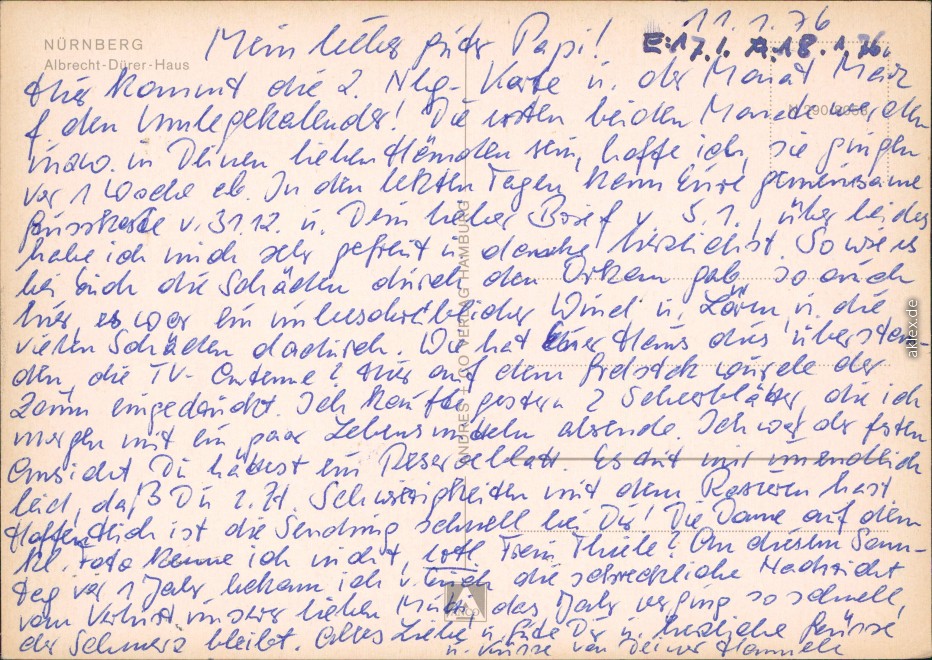 11.1.76
NÜRNBERG
Albrecht-Dürer-Haus
Mein lieber guter Papi!
E: 17.1. A: 18.1.76
Hier kommt die 2. Nbg-Karte u. der Monat März
f. den Umlegekalender! Die ersten beiden Monate werden
inzw. in Deinen lieben Händen sein, hoffe ich, sie gingen
vor 1 Woche ab. In den letzten Tagen kam Eure gemeinsame
Grusskarte v. 31.12. u. Dein lieber Brief v. 5.1., über beides
habe ich mich sehr gefreut u. danke herzlichst. So wie es
bei Euch die Schäden durch den Orkan gab, so auch
hier, es war ein unbeschreiblicher Wind u. Lärm u. die
vielen Schäden dadurch. Wie hat Euer Haus das überstan-
den, die TV-Antenne? Hier auf dem Grdstck wurde der
Zaun eingedrückt. Ich kaufte gestern 2 Scherblätter, die ich
morgen mit ein paar Lebensmitteln absende. Ich war der festen
Ansicht Du hättest ein Reserveblatt. Es tut mir unendlich
leid, daß Du z.Zt. Schwierigkeiten mit dem Rasieren hast.
Hoffentlich ist die Sendung schnell bei Dir! Die Dame auf dem
kl. Foto kenne ich nicht, evtl. Frau Thiele? An diesem Sonn-
tag vor 1 Jahr bekam ich v. Euch die schreckliche Nachricht
vom Verlust unserer lieben Mutti, das Jahr verging so schnell
der Schmerz bleibt. Alles Liebe u. Gute Dir u. herzliche Grüsse
u. Küsse von Deiner
ANDRES + CO VERLAG HAMBURG
ANCO
akpool.de